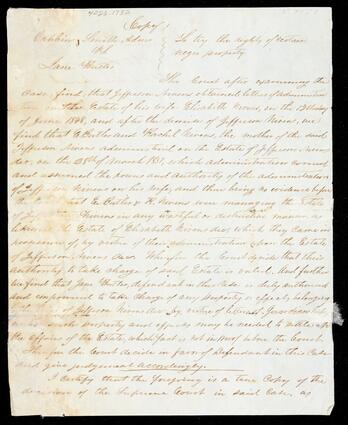 4026.1730
(Copy)
Smith Admr
To try the rights of certain
VS.
negro property
Jane
The Court after examining the
case, find that Jefferson Nivens obtained letters of administra-
tion in the Estate of his wife Elizabeth Nivens, on the
of June 1848, and after the demise of Jefferson Nivens, we
find that & Rachel Nivens, the mother of the said
Jefferson Nivens administered on the Estate of Jefferson Nivens
dec, on the 28th of March 1851, which administration
and assumed the powers and authority of the administration
of Jefferson Nivens on his wife, and there being no evidence before
the Court that & R. Nivens were managing the Estate
of Nivens in any wasteful or destructive manner as
likewise the Estate of Elizabeth Nivens dec, which they came in
possession of, by virtue of their administration upon the Estate
of Jefferson Nivens dec. Therefore the Court decide that their
authority to take charge of said Estate is valid. And further
we find that Jane defendant in this case is duly authorised
and empowered to take charge of any property or effects belonging
of Jefferson Nivens dec by virtue of
such property and effects may be needed to settle up
the affairs of the Estate, which fact is not in proof before the Court.
Therefore the Court decide in favor of Defendant in this Case
and give judgement accordingly.
I certify that the foregoing is a true Copy of the
decision of the Supreme Court in said Case, as